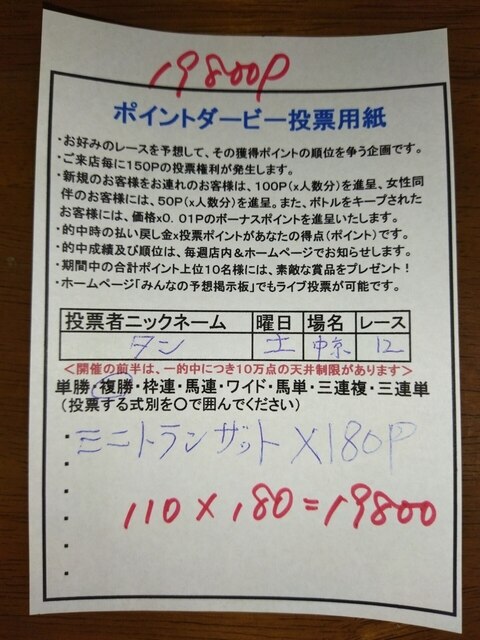 19800P
ポイントダービー投票用紙
・お好みのレースを予想して、その獲得ポイントの順位を争う企画です。
・ご来店毎に150Pの投票権利が発生します。
・新規のお客様をお連れのお客様は、100P(x人数分)を進呈、女性同
伴のお客様には、50P(x人数分)を進呈。また、ボトルをキープされた
お客様には、価格x0．01Pのボーナスポイントを進呈いたします。
・的中時の払い戻し金x投票ポイントがあなたの得点(ポイント)です。
・的中成績及び順位は、毎週店内&ホームページでお知らせします。
・期間中の合計ポイント上位10名様には、素敵な賞品をプレゼント！
・ホームページ「みんなの予想掲示板」でもライブ投票が可能です。
投票者ニックネーム 曜日 場名 レース
タン 土 中京 12
<開催の前半は、一的中につき10万点の天井制限があります>
単勝・複勝・枠連・馬連・ワイド・馬単・三連複・三連単
(投票する式別を○で囲んでください)
ミニトランザット X180P
110×180=19800